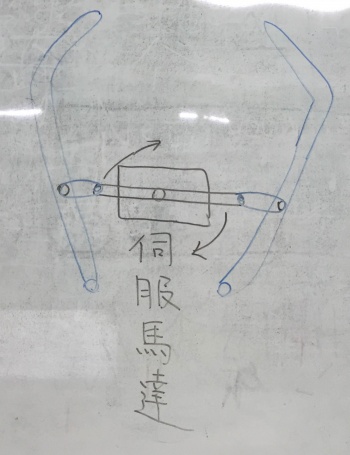 伺
服
馬
達